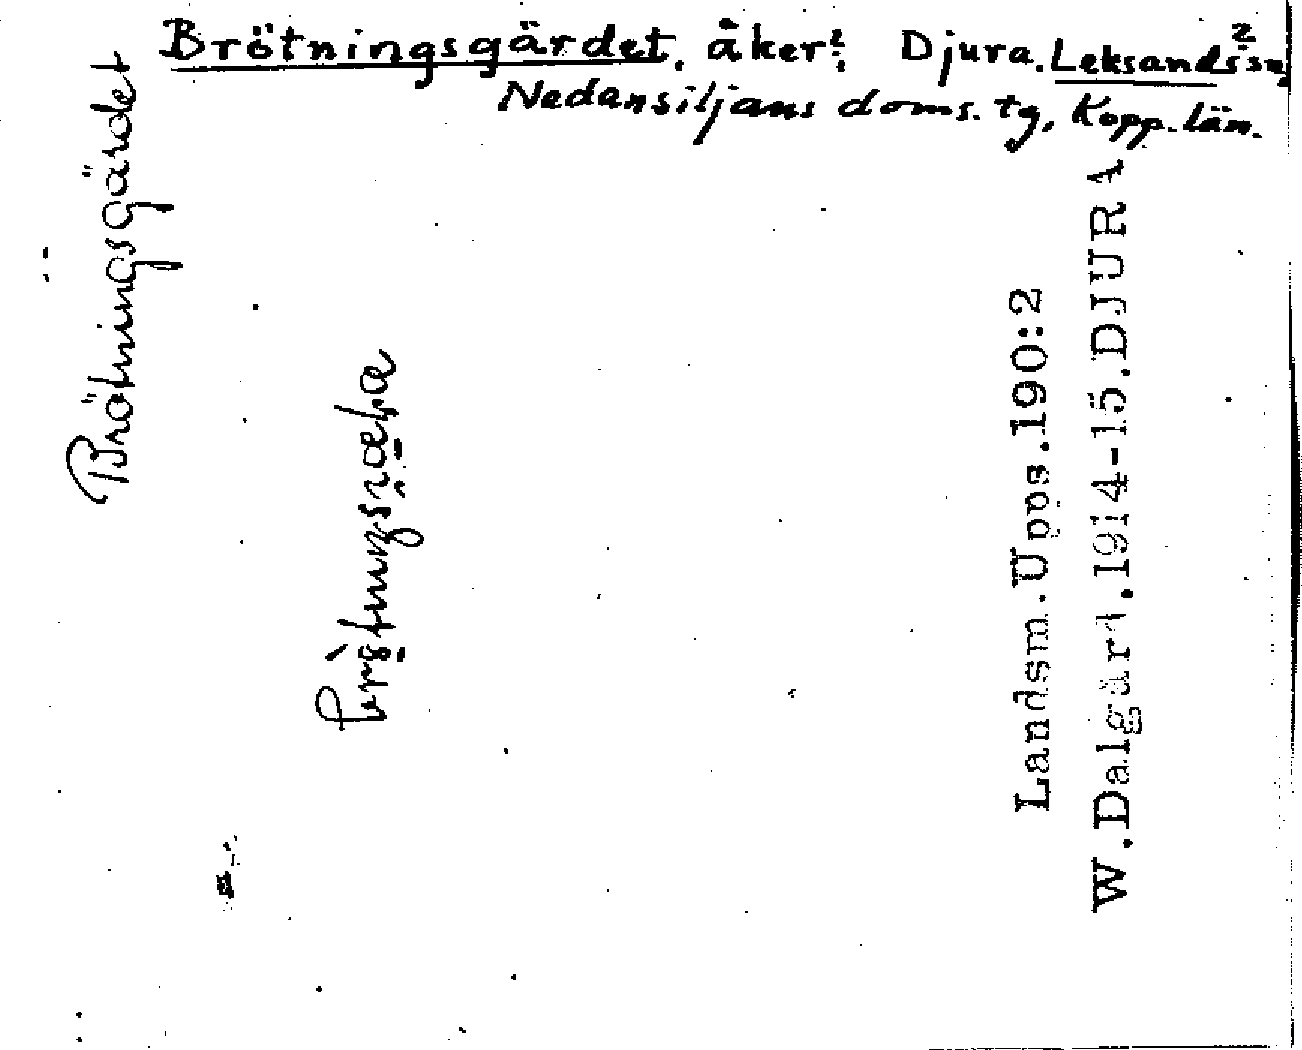 Brötningsgärdet, åker? Djura. Leksands 2 sn,
Nedansiljans doms. tg, Kopp. län.
Brötningsgärdet
Landsm.Upps.190:2
W.Dalgärt.1914-15.DJURA